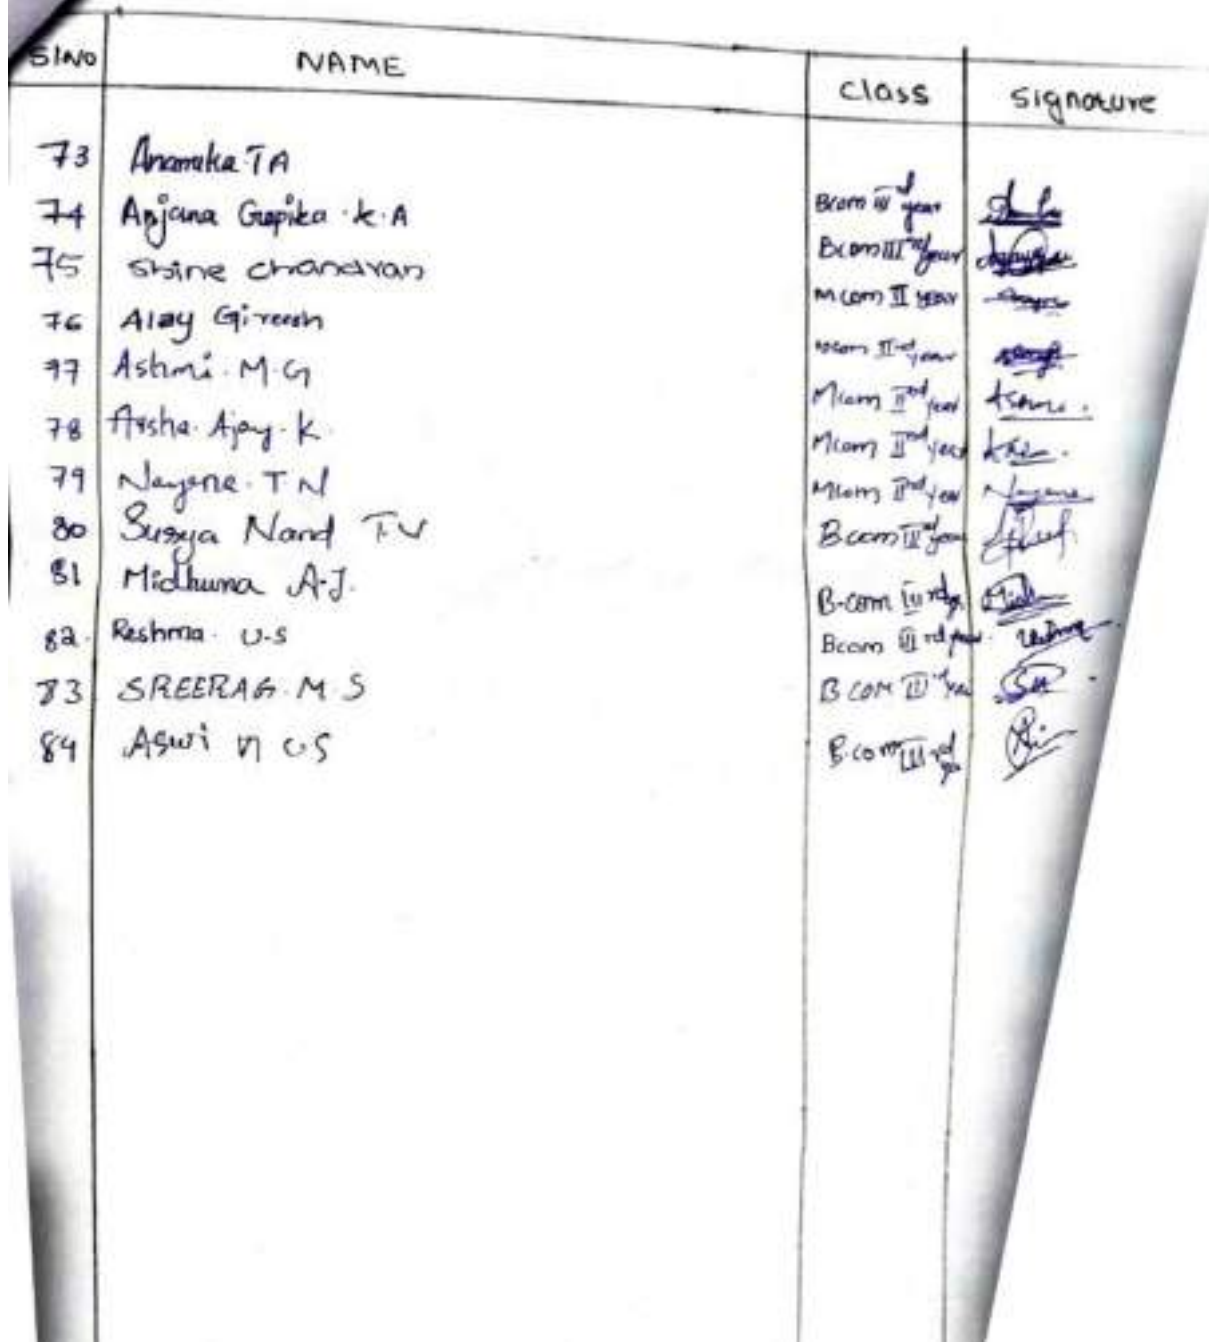 SlNo NAME Class Signature
73 Anamika T A Bcom III rd year
74 Anjana Gopika . K . A Bcom III rd year
75 Shine chandran Mcom II year
76 Alay Gireesh Mcom II nd year
77 Ashmi . M . G Mcom II nd year Ashmi .
78 Arsha Ajay . K Mcom II nd year
79 Nayana . T N Mcom II nd year Nayana
80 Surya Nand T V Bcom III rd year
81 Midhuna A.J. B.com III rd yr
82 . Reshma . U.S Bcom III rd year .
83 SREERAG . M . S B COM III rd year
84 Aswin U.S B.com III rd yr